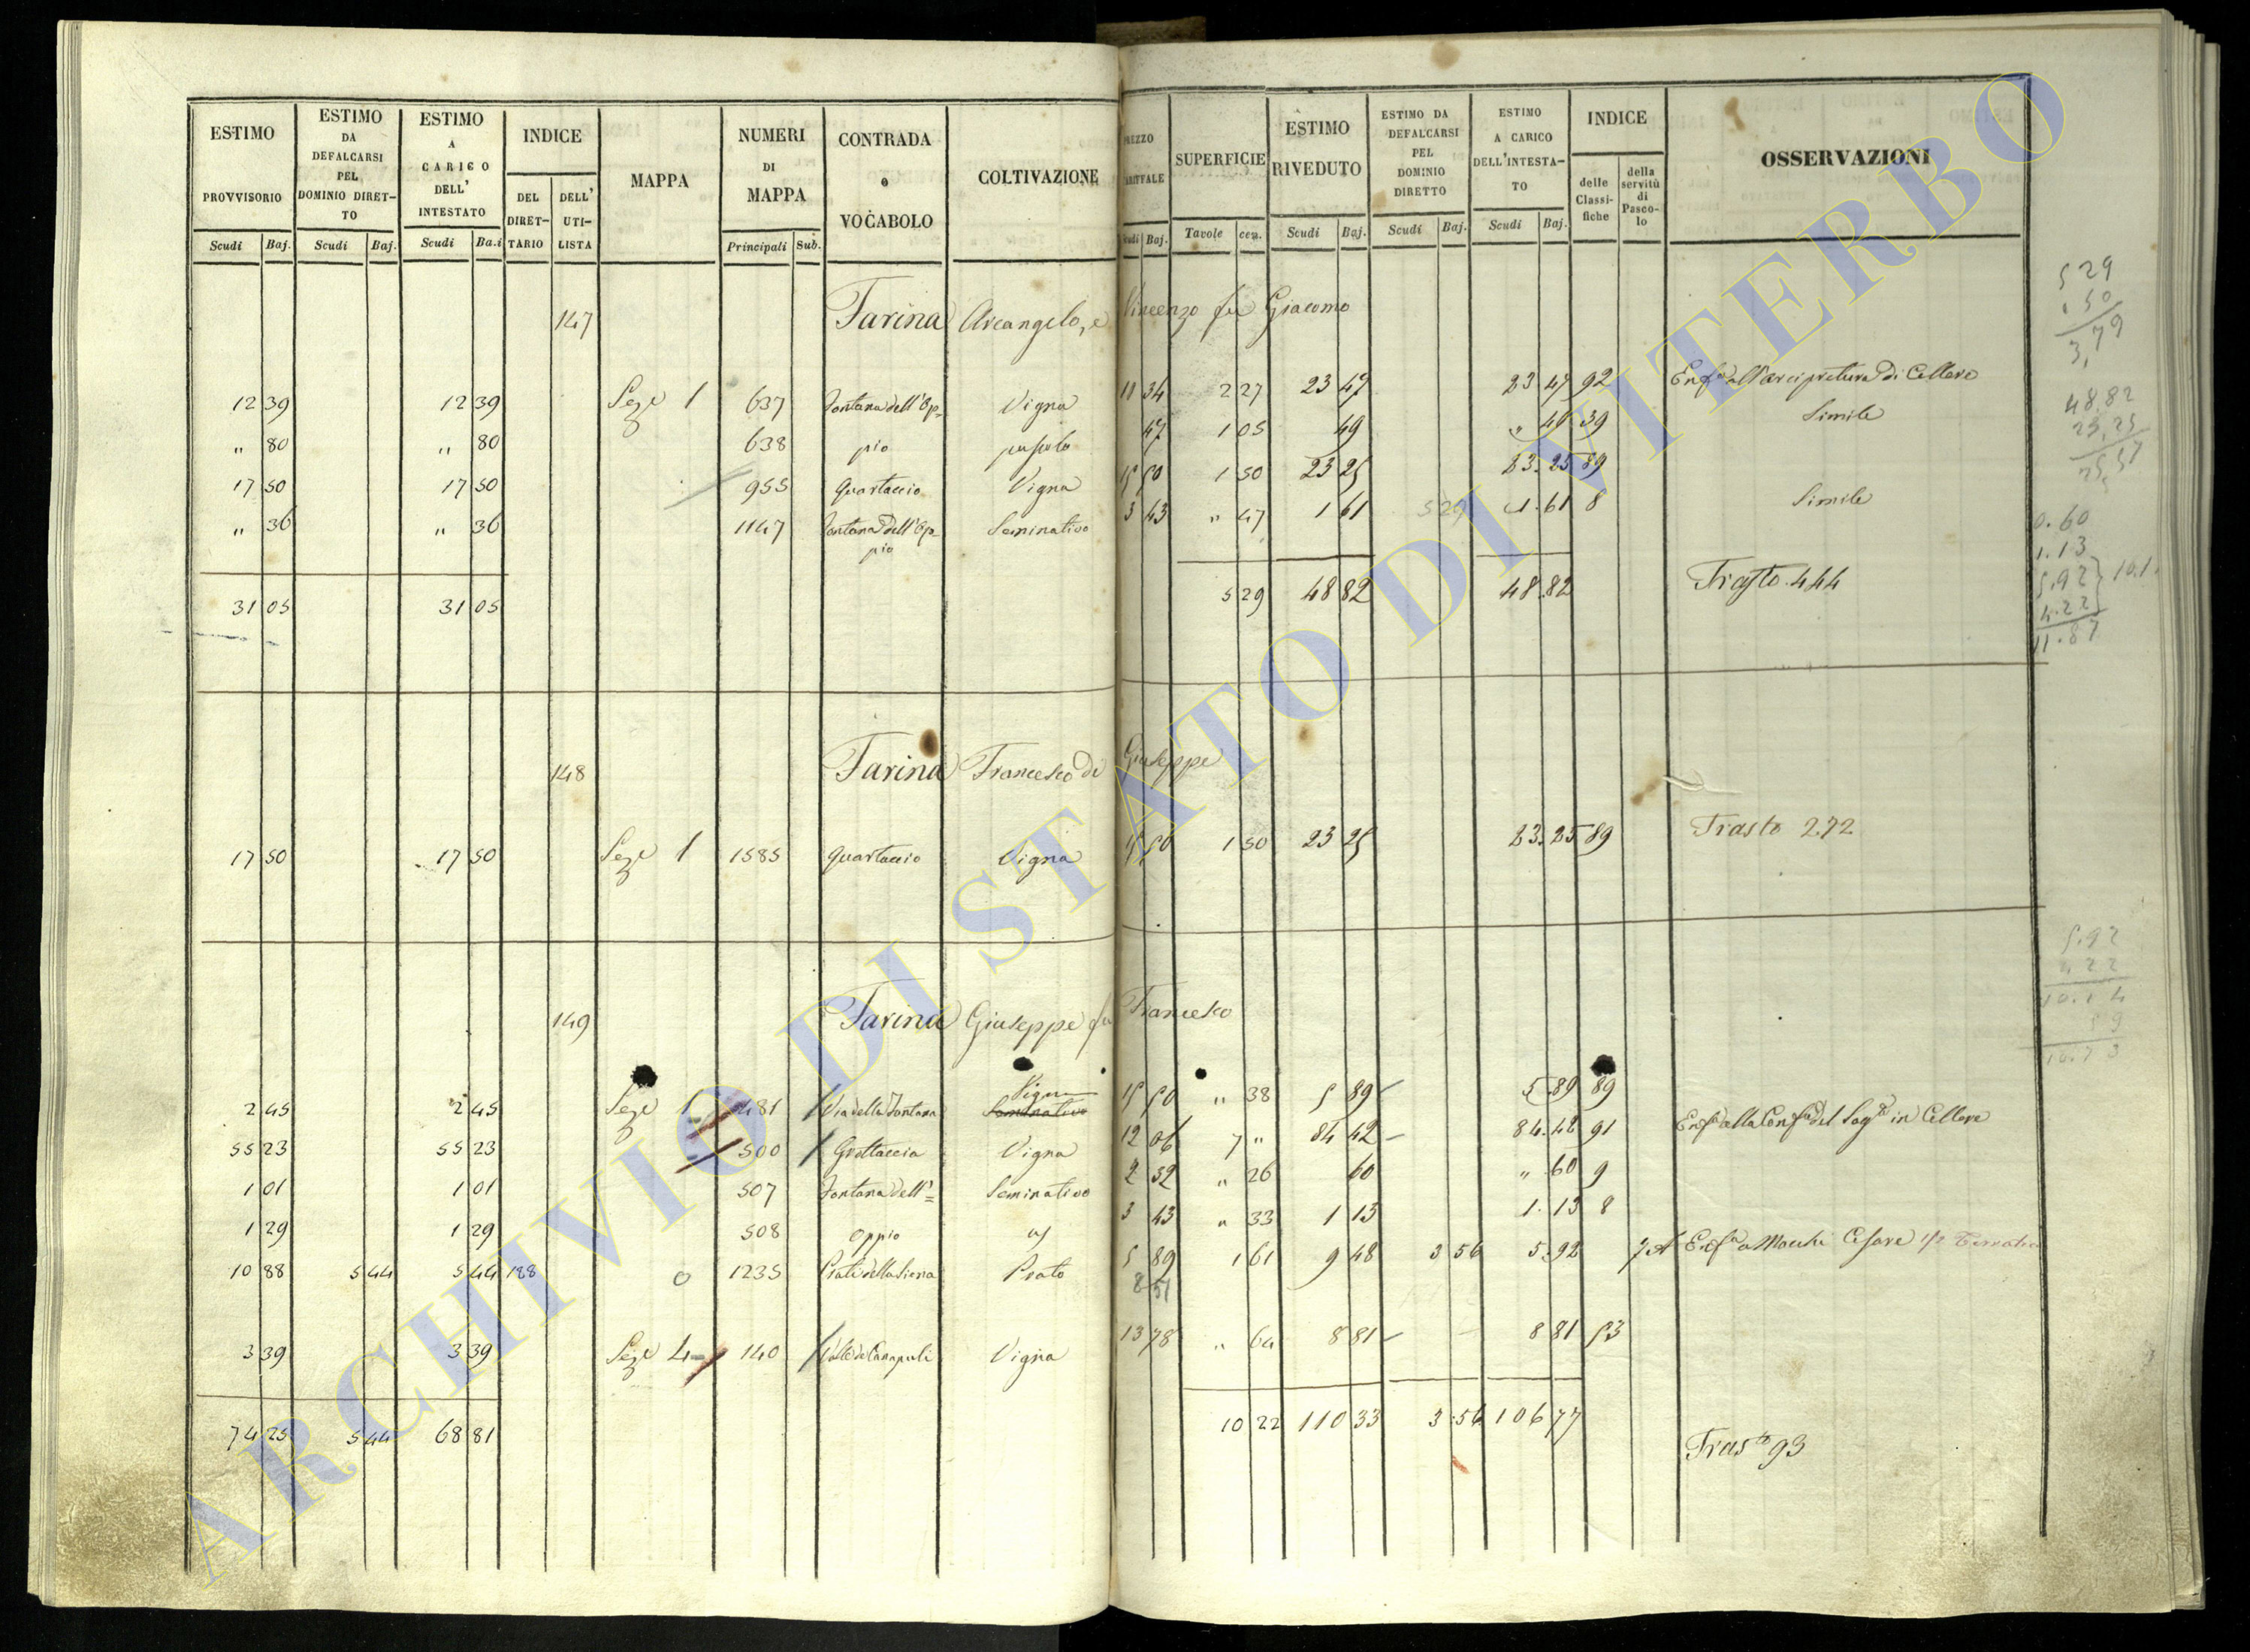 ESTIMO PROVVISORIO Scudi Baj. | ESTIMO DA DEFALCARSI PEL DOMINIO DIRET-TO Scudi Baj. | ESTIMO A CARICO DELL' INTESTATO Scudi Ba.i | INDICE DEL DIRET-TARIO DELL' UTI-LISTA | MAPPA | NUMERI DI MAPPA Principali Sub. | CONTRADA o VOCABOLO | COLTIVAZIONE | PREZZO Baj. | SUPERFICIE Tavole cen. | ESTIMO RIVEDUTO Scudi Baj. | ESTIMO DA DEFALCARSI PEL DOMINIO DIRETTO Scudi Baj. | ESTIMO A CARICO DELL'INTESTA-TO Scudi Baj. | INDICE delle Classi-fiche della servitù di Pasco-lo | OSSERVAZIONI
147 Farina Arcangelo, e Vincenzo fu Giacomo
12 39 12 39 Seze 1 637 Fontana dell'Op= Vigna 11 34 2 27 23 47 23.47 92 Enf. all'arcipretura di Cellere
" 80 " 80 638 pio 47 1 05 49 " 49 39 Simile
17 50 17 50 955 Quartaccio Vigna 15 50 1 50 23 25 23.25 89
" 36 " 36 1147 Fontana dell'Op= Seminativo 3 43 " 47 1 61 5 29 1.61 8 Simile
pio
31 05 31 05 5 29 48 82 48.82 Trasto 444
148 Farina Francesco di Giuseppe
17 50 17 50 Seze 1 1585 Quartaccio Vigna 15 50 1 50 23 25 23.25 89 Trasto 272
149 Farina Giuseppe fu Francesco
Vigna
2 45 2 45 Seze 1 481 Via della Fontana Seminativo 15 50 " 38 5 89 5 89 89
55 23 55 23 500 Grottaccia Vigna 12 06 7 " 84 42 84.42 91 Enf. alla Conf. del Sag. in Cellere
1 01 1 01 507 Fontana dell'= Seminativo 2 32 " 26 60 " 60 9
1 29 1 29 508 Oppio 3 43 " 33 1 13 1.13 8
10 88 5 44 5 44 188 0 1235 Prato 5 89 1 61 9 48 3 56 5.92 7A Enf. a Mochi Cesare 1/2
8 51
3 39 3 39 Seze 4 140 Valle de Canapuli Vigna 13 78 " 64 8 81 8 81 53
74 25 5 44 68 81 10 22 110 33 3.56 106 77
Trasto 93
5 29
1.50
3,79
48.82
23,25
25,57
0.60
1.13
5.92
4.22
11.87
5.92
4 22
10.14
59
10.73
ARCHIVIO DI STATO DI VITERBO